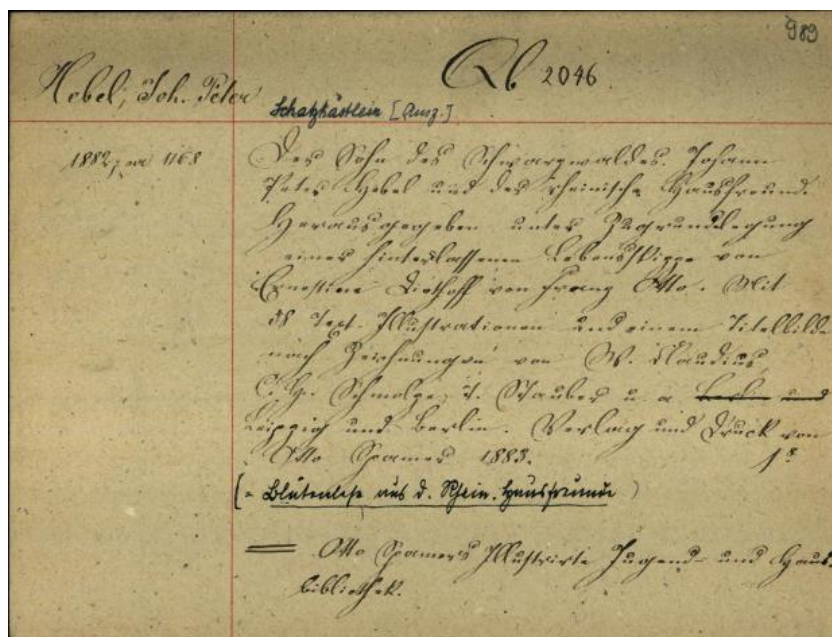 989
Qb 2046
Hebel, Joh. Peter
Schatzkästlein [Ausz.]
1882, 1168
Der Sohn des Schwarzwaldes. Johann
Peter Hebel und der rheinische Hausfreund.
Herausgegeben unter Zugrundlegung
einer hinterlassenen Lebensskizze von
Ernestine Diethoff von Franz Otto. Mit
58 Text-Illustrationen und einem Titelbilde
nach Zeichnungen von W. Claudius,
C. H. Schmolze, Stauber u. a. Berl und
Leipzig und Berlin. Verlag und Druck von
Otto Spamer 1883. 8°
(= Blütenlese aus d. Rhein. Hausfreunde)
= Otto Spamers Illustrirte Jugend- und Haus-
bibliothek.